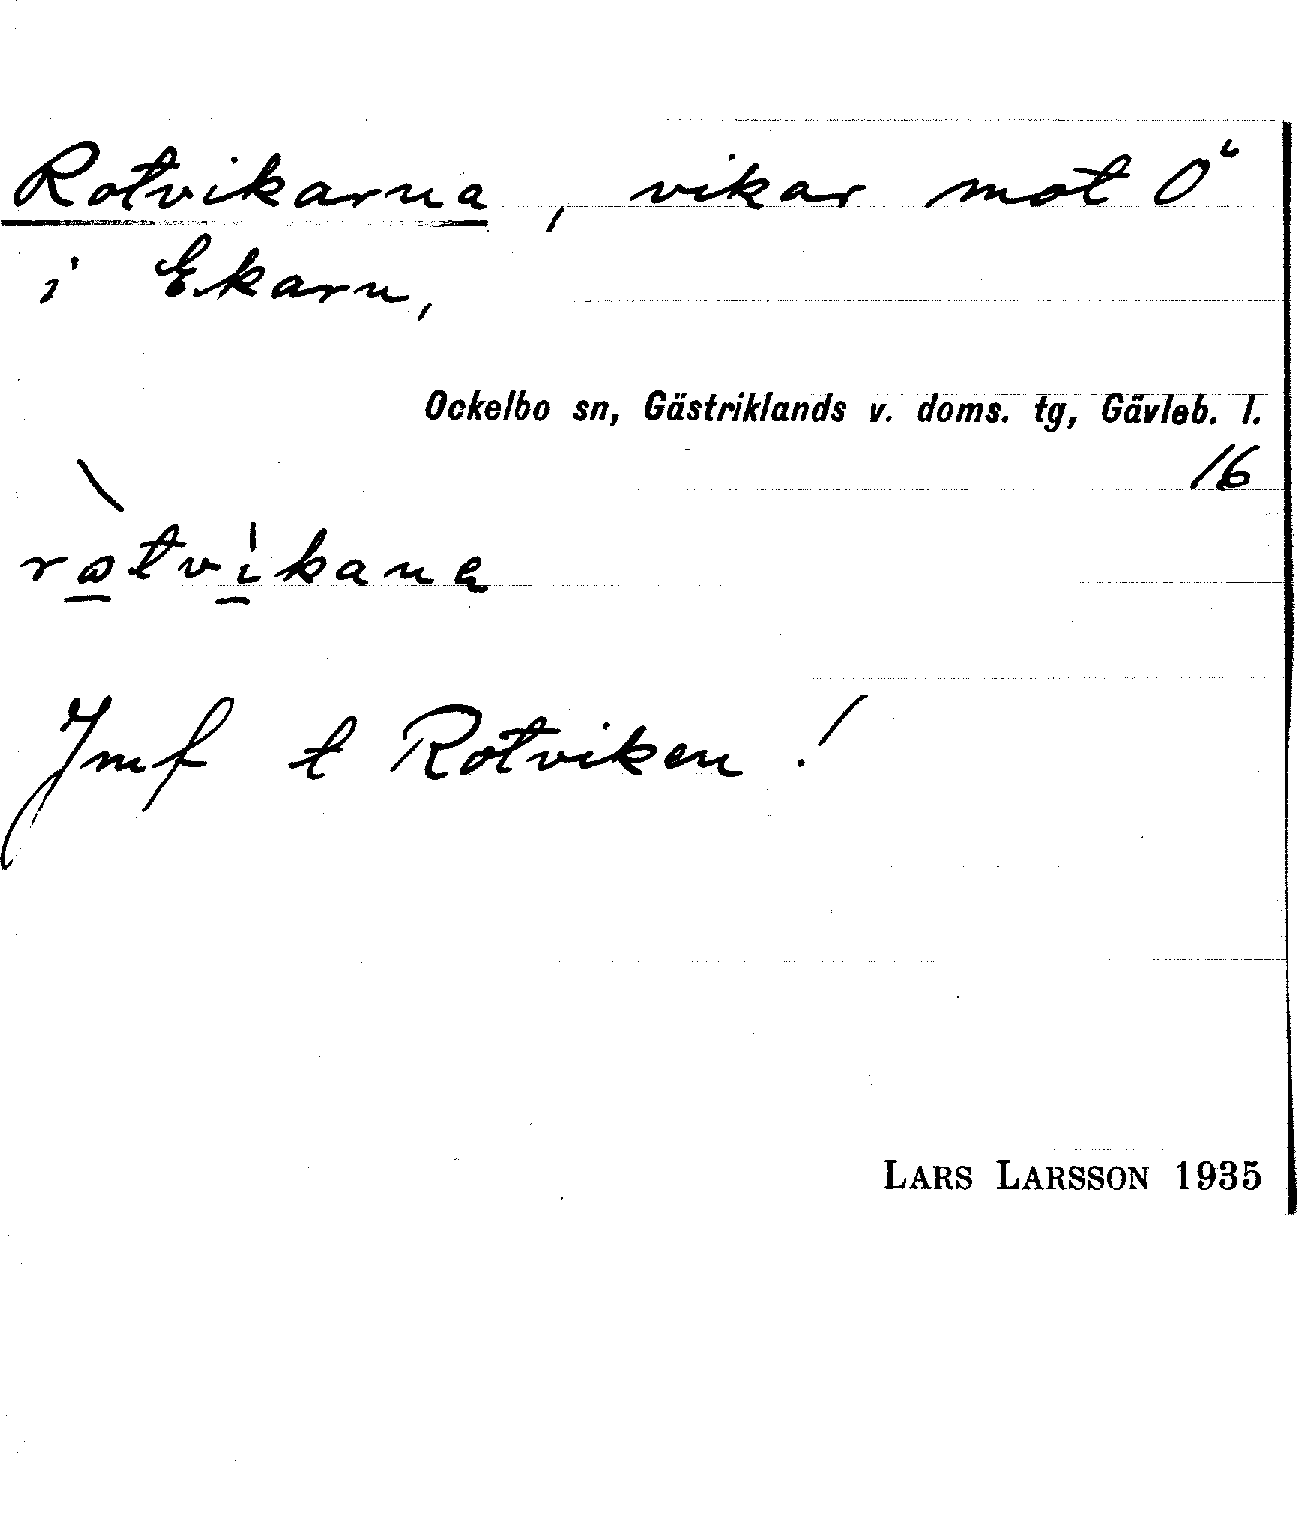 Rotvikarna, vikar mot Ö
i Ekarn,
Ockelbo sn, Gästriklands v. doms. tg, Gävleb. l.
16
ròtvikana
Jmf t Rotviken !
LARS LARSSON 1935